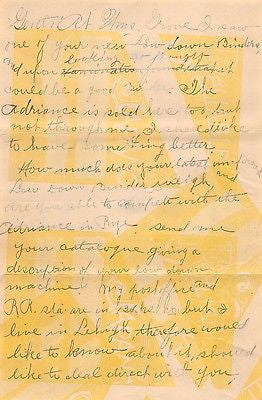 Gents: At Wms. Grove I saw
one of your new Low down Binders,
and upon looking it
could be a good binder. The
Adriance is sold here too, but
not through me I should like
to have something better.
How much does your latest improved
Low Down Binder weigh and
are you able to compete with the
Adriance in Rye. send me
your catalogue giving a
description of your low down
machine My post office and
RR. sta. are in but I
live in Lehigh therefore would
like to know about it, should
like to deal direct with you,